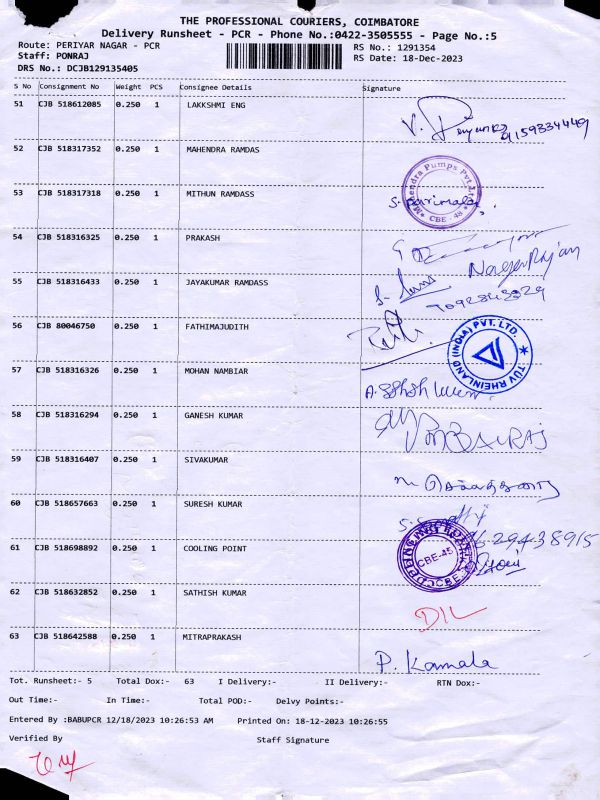 THE PROFESSIONAL COURIERS, COIMBATORE
Delivery Runsheet - PCR - Phone No.:0422-3505555 - Page No.:5
Route: PERIYAR NAGAR - PCR
RS No.: 1291354
Staff: PONRAJ
RS Date: 18-Dec-2023
DRS No.: DCJB129135405
S No Consignment No Weight PCS Consignee Details Signature
51 CJB 518612085 0.250 1 LAKKSHMI ENG
52 CJB 518317352 0.250 1 MAHENDRA RAMDAS
Mahendra Pumps Pvt. Ltd. CBE - 48
53 CJB 518317318 0.250 1 MITHUN RAMDASS
S. parimala
54 CJB 518316325 0.250 1 PRAKASH
NagenRajan
55 CJB 518316433 0.250 1 JAYAKUMAR RAMDASS
56 CJB 80046750 0.250 1 FATHIMAJUDITH
TÜV RHEINLAND (INDIA) PVT. LTD.
57 CJB 518316326 0.250 1 MOHAN NAMBIAR
58 CJB 518316294 0.250 1 GANESH KUMAR
59 CJB 518316407 0.250 1 SIVAKUMAR
60 CJB 518657663 0.250 1 SURESH KUMAR
61 CJB 518698892 0.250 1 COOLING POINT
CBE-45
62 CJB 518632852 0.250 1 SATHISH KUMAR
DIL
63 CJB 518642588 0.250 1 MITRAPRAKASH
P. Kamala
Tot. Runsheet:- 5 Total Dox:- 63 I Delivery:- II Delivery:- RTN Dox:-
Out Time:- In Time:- Total POD:- Delvy Points:-
Entered By :BABUPCR 12/18/2023 10:26:53 AM Printed On: 18-12-2023 10:26:55
Verified By Staff Signature